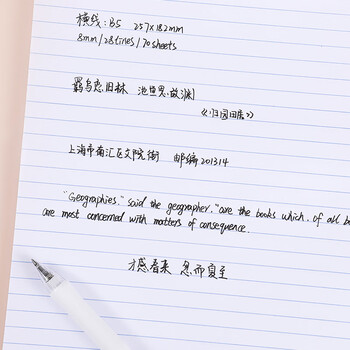 横线: B5 257×182mm
8mm/28lines/70sheets
羁鸟恋旧林 池鱼思故渊
《归园田居》
上海市南汇区文院街 邮编 201314
"Geographies," said the geographer, "are the books which, of all b
are most concerned with matters of consequence.
才感春来 忽而夏至